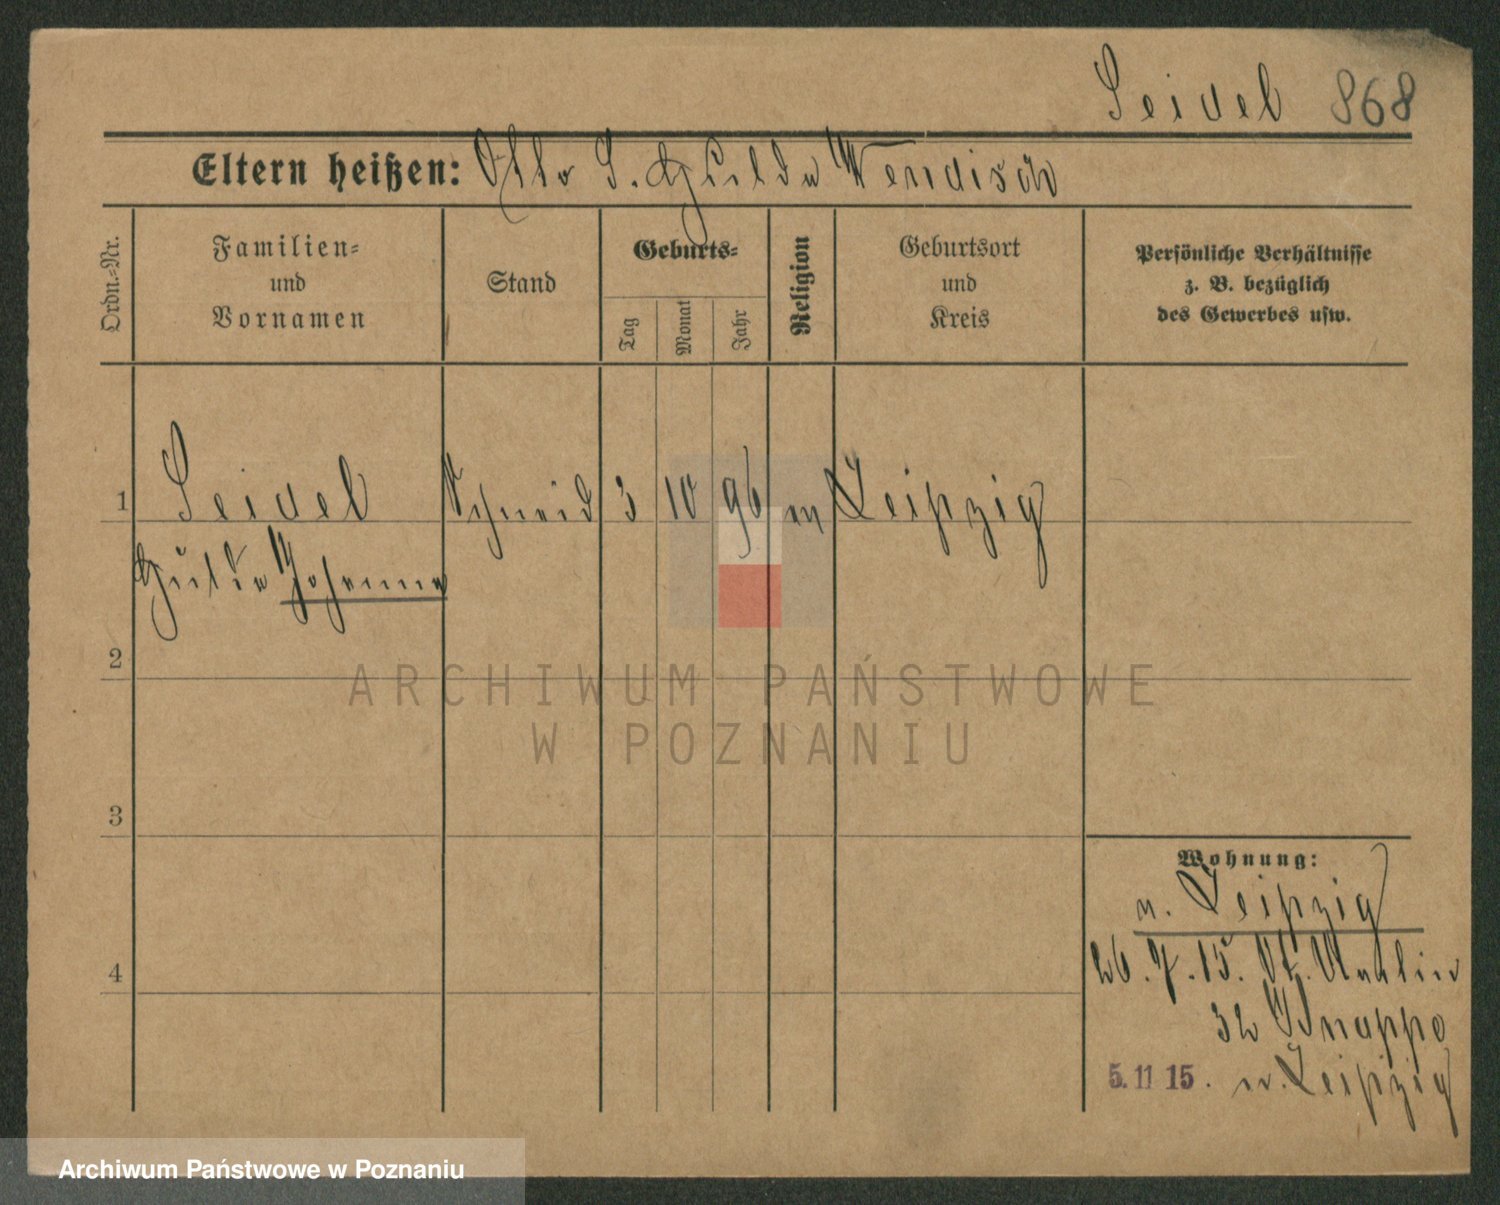 Seidel 868
Eltern heißen: Otto S. Hulda Wendisch
Ordn.-Nr.
Familien-
und
Vornamen
Stand
Geburts-
Tag
Monat
Jahr
Religion
Geburtsort
und
Kreis
Persönliche Verhältnisse
z. B. bezüglich
des Gewerbes usw.
1 Seidel Schneid 3 10 96 m Leipzig
Hulda Johanna
2
3
4
Wohnung:
n. Leipzig
26.7.15.
32
5. 11 15. n. Leipzig
ARCHIWUM PAŃSTWOWE
W POZNANIU
Archiwum Państwowe w Poznaniu